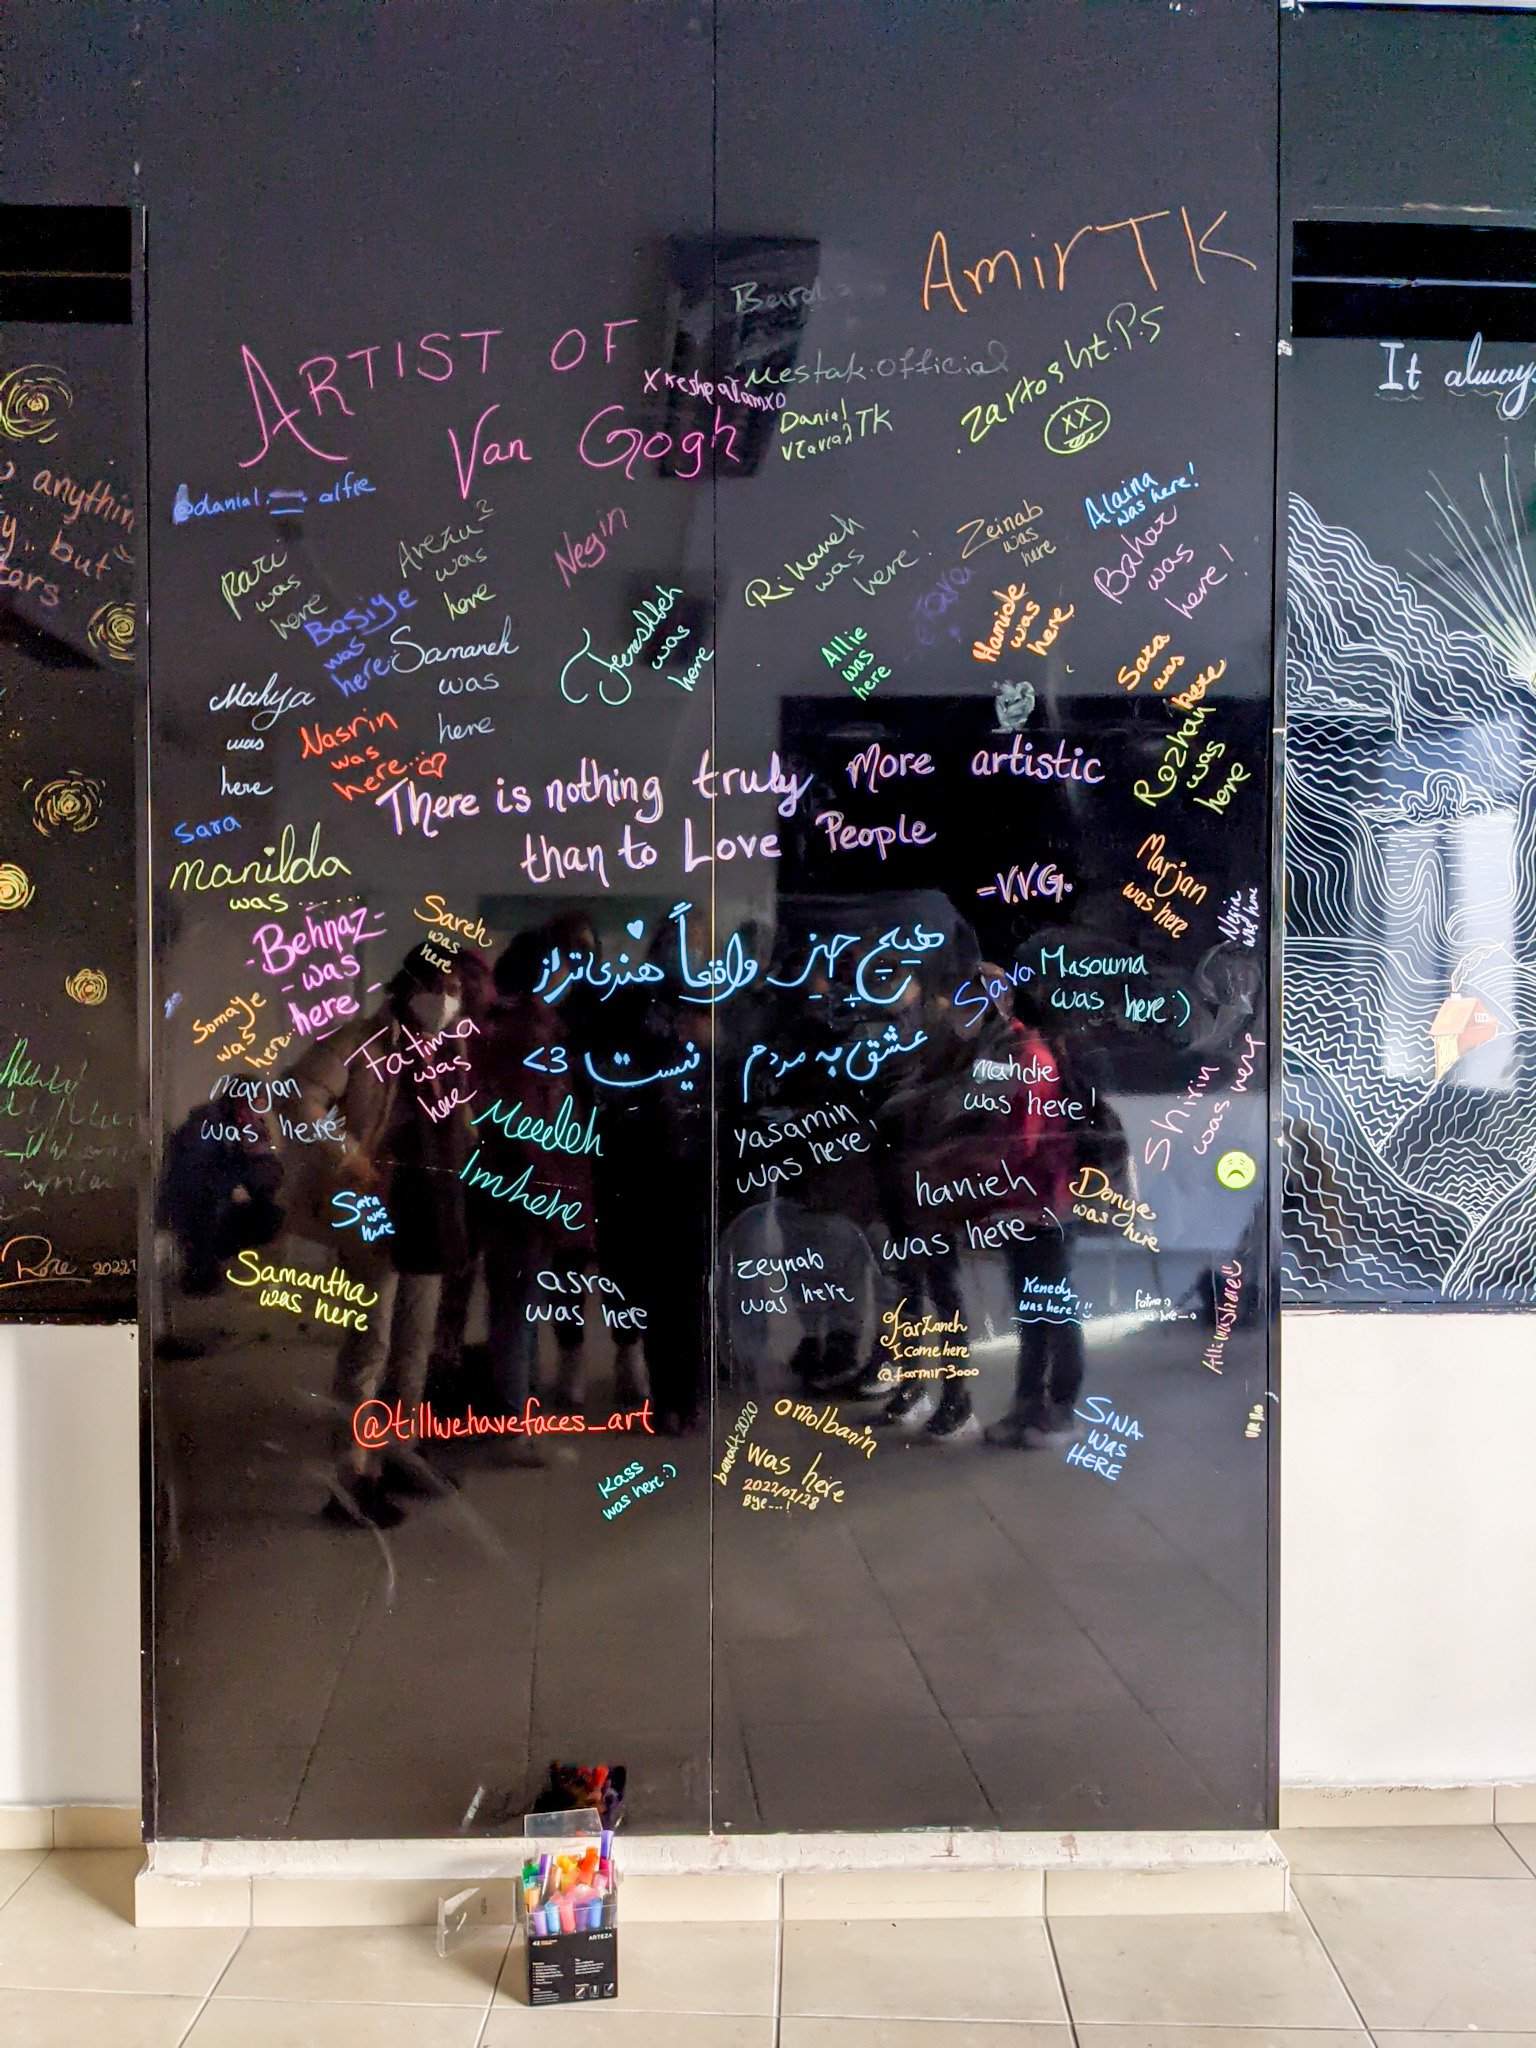 AmirTK
ARTIST OF
Van Gogh
Mestak.official
zartosht.P.S
XX
Danial
TK
It always
anything
but
tars
alfie
Pari
was
here
Arezu
was
here
Negin
Rihaneh
was
here!
Zeinab
was
here
Alaina
was here!
Bahar
was
here!
Basiye
was
here:
Samaneh
was
here
was
here
Allie
was
here
Hamide
was
here
Sara
was
here
Mahya
was
here
Nasrin
was
here..
Rozhan
was
here
There is nothing truly more artistic
than to Love People
-V.V.G.
Sara
manilda
was ......
Marjan
was here
Negin
was here
-Behnaz-
-was
here-
Sareh
was
here
هیچ چیز واقعاً هنری‌تر از
عشق به مردم نیست <3
Sara
Masouma
was here:)
Somaye
was
here...
Fatima
was
here
Marjan
was here
Imhere.
mahdie
was here!
Shirin
was here
yasamin
was here!
hanieh
was here:)
Donya
was here
Sara
was
here
Samantha
was here
asra
was here
zeynab
was here
Kenedy
was here!
Fatima:)
was here
Farzaneh
I come here
@farmir3000
@tillwehavefaces_art
omolbanin
was here
2022/01/28
Bye....!
SINA
WAS
HERE
Kass
was here:)
Rose 2022
ARTEZA